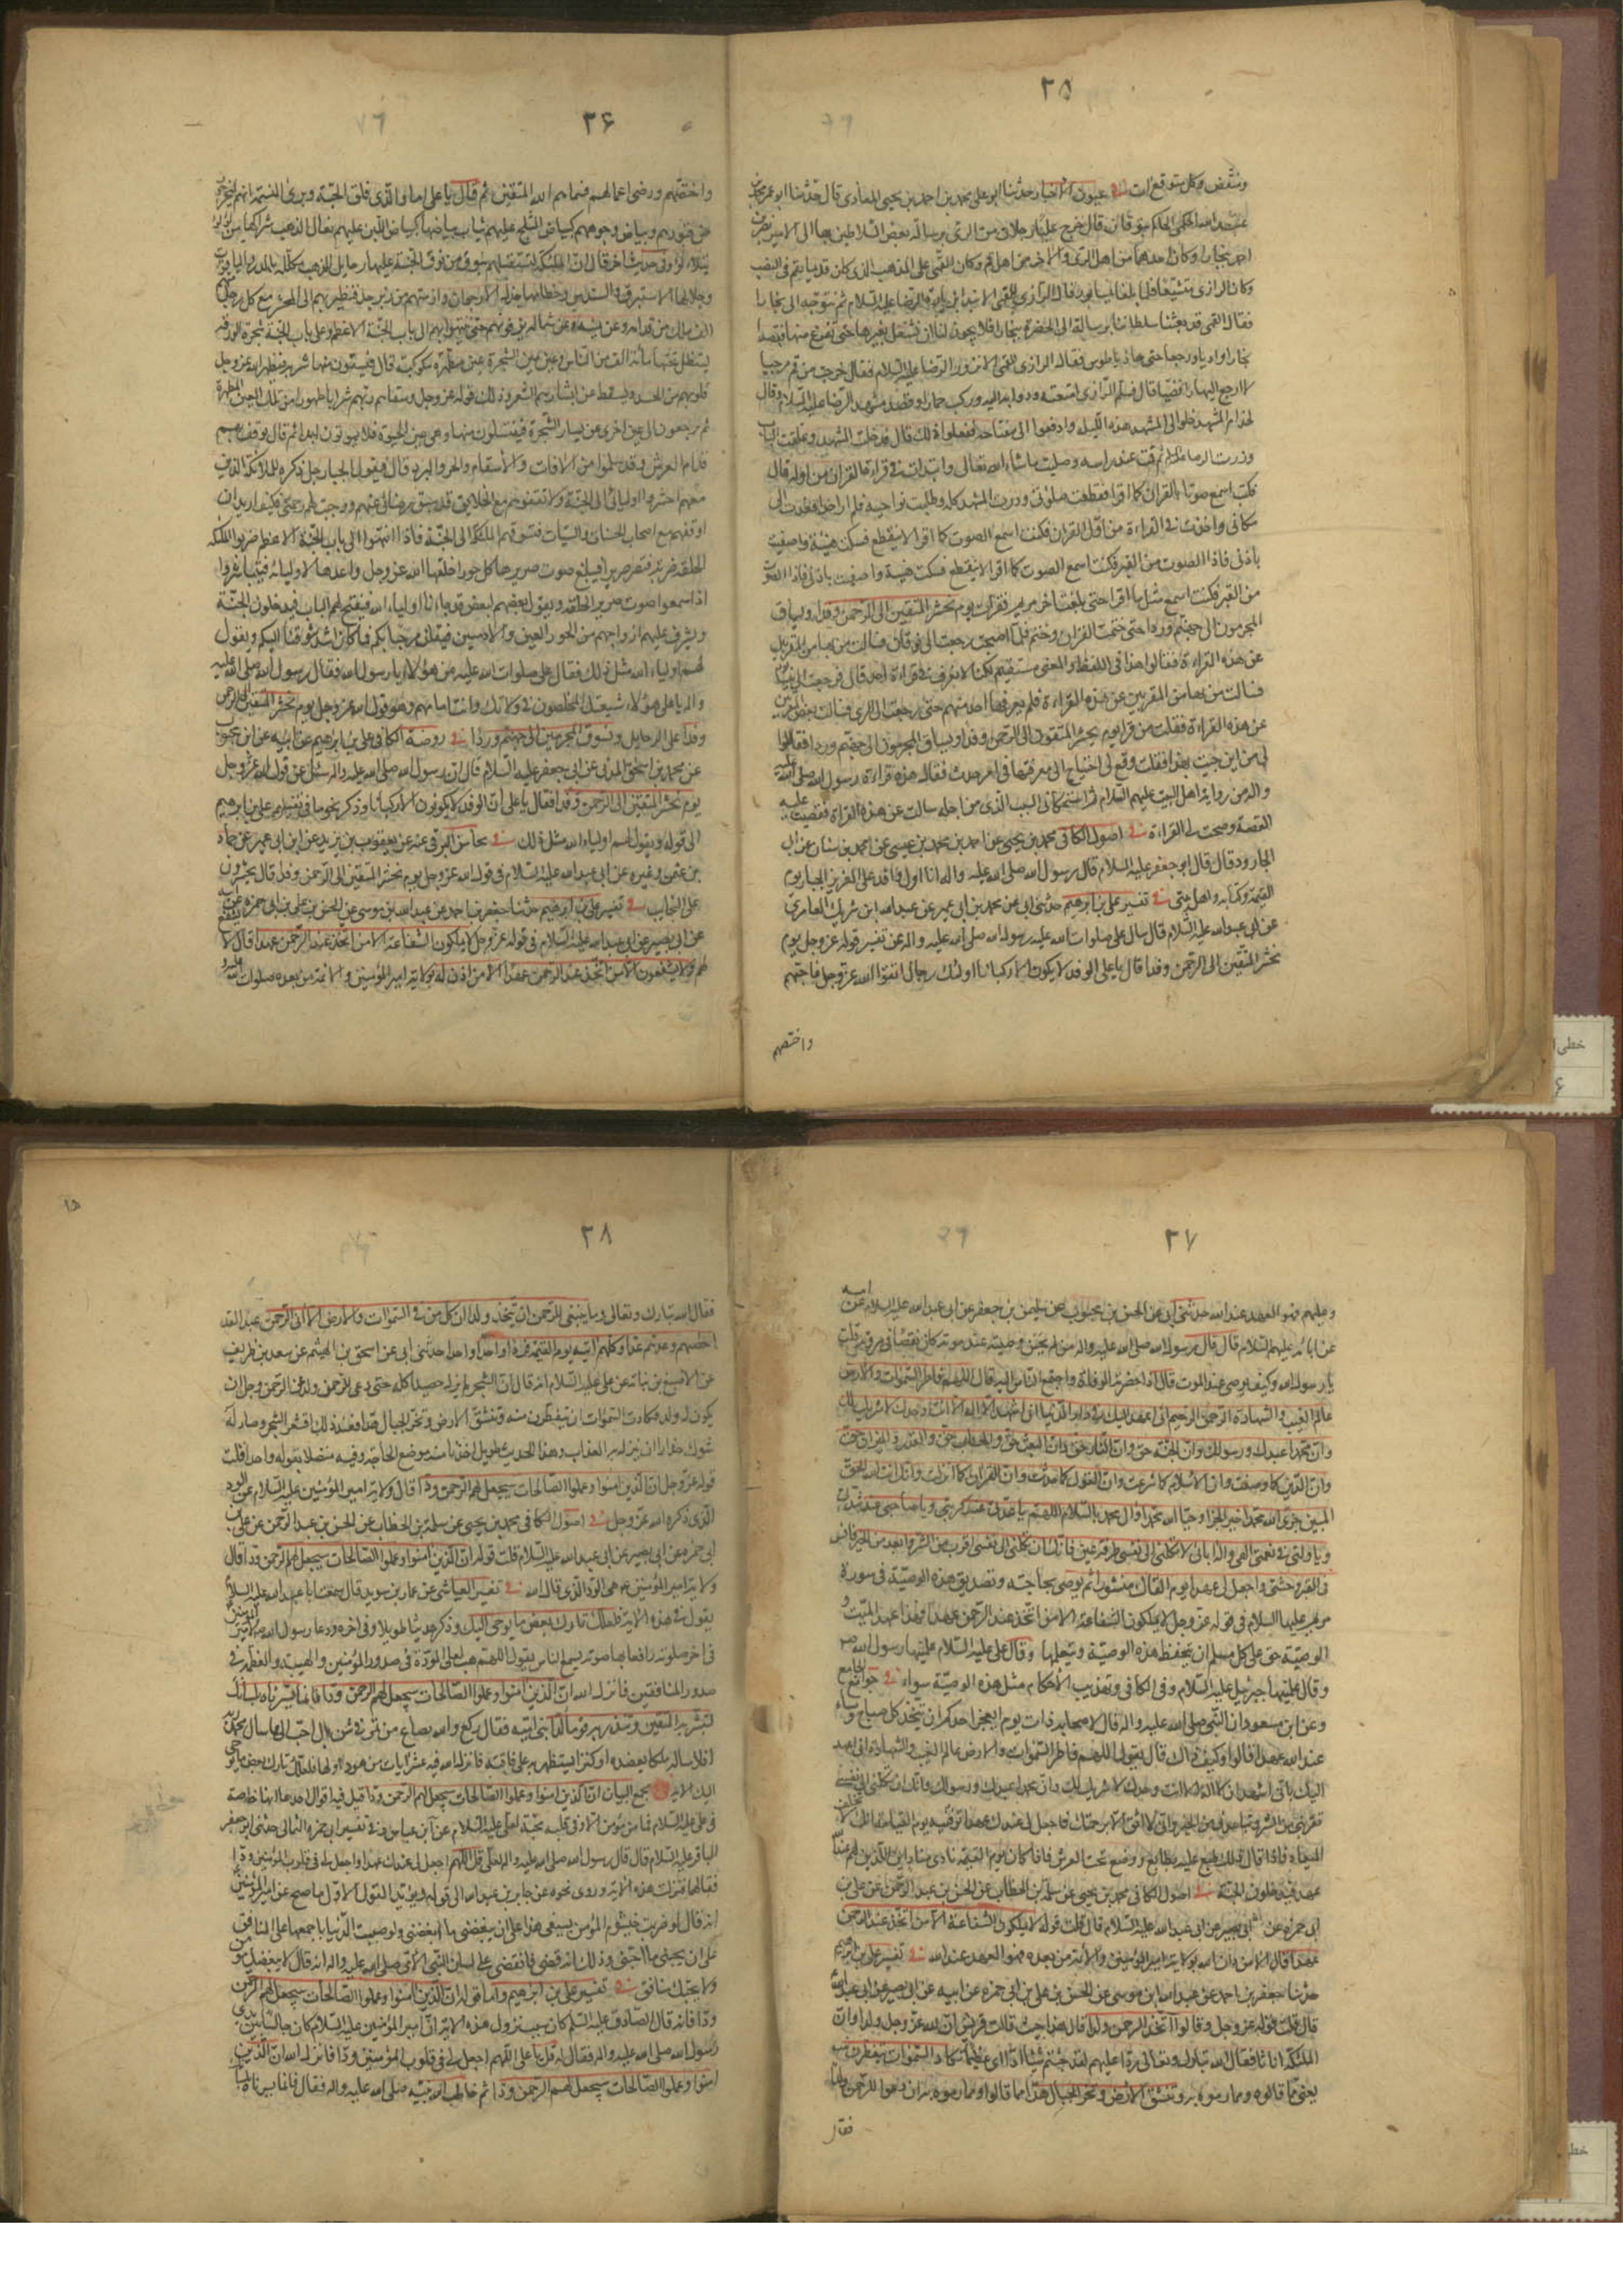 ٢٥
ونتغض وكل متوقع ات في عيون الاخبار حدثنا ابو على محمد بن احمد بن يحيى المعاذى قال حدثنا ابو عمرو محمد بن
عبد الله الحكمى الحاكم بنوقان قال خرج علينا رجلان من الرى برسالة بعض السلاطين بها الى الامير نصر بن
احمد ببخارا وكان احدهما من اهل الرى والاخر من اهل قم وكان القمى على المذهب الذى كان قديما بقم فى النصب
وكان الرازى متشيعا فلما بلغا نيسابور قال الرازى للقمى الا نبدأ بزيارة الرضا عليه السلام ثم نتوجه الى بخارا
فقال القمى قد بعثنا سلطاننا برسالة الى الحضرة ببخارا فلا يجوز لنا ان نشتغل بغيرها حتى نفرغ منها فقصدا
بخارا واديا ورجعا حتى حاذيا طوس فقال الرازى للقمى الا نزور الرضا عليه السلام فقال خرجت من قم مرجيا
لا ارجع اليها رافضيا قال فسلم الرازى امتعته ودوابه اليه وركب حمارا وقصد مشهد الرضا عليه السلام وقال
لخدام المشهد خلوا لى المشهد هذه الليلة وادفعوا الى مفتاحه ففعلوا ذلك قال فدخلت المشهد وغلقت الباب
وزرت الرضا عليه السلام ثم قمت عند راسه وصليت ما شاء الله تعالى وابتدات فى قراءة القران من اوله قال
فكنت اسمع صوتا بالقران كما اقرا فقطعت صلوتى وزرت المشهد كله وطلبت نواحيه فلم ار احدا فعدت الى
مكانى واخذت فى القراءة من اول القران فكنت اسمع الصوت كما اقرا لا ينقطع فسكت هنيئة واصغيت
باذنى فاذا الصوت من القبر فكنت اسمع الصوت كما اقرا لا ينقطع فسكت هنيئة واصغيت باذنى فاذا الصوت
من القبر فكنت اسمع مثل ما اقرا حتى بلغت اخر مريم فقرات يوم نحشر المتقين الى الرحمن وفدا ويساق
المجرمون الى جهنم وردا حتى ختمت القران وختم فلما اصبحت رجعت الى نوقان فسالت من بها من المقرئين
عن هذه القراءة فقالوا هذا فى اللفظ والمعنى مستقيم لكنا لا نعرف فى قراءة احد قال فرجعت الى نيسابور
فسالت من بها من المقريين عن هذه القراءة فلم يعرفها احد منهم حتى رجعت الى الرى فسالت بعض المقريين
عن هذه القراءة فقلت من قرا يوم يحشر المتقون الى الرحمن وفدا ويساق المجرمون الى جهنم وردا فقال
لى من اين جئت بهذا فقلت وقع لى احتياج الى معرفتها فى امر حدث فقال هذه قراءة رسول الله صلى الله عليه
واله من رواية اهل البيت عليهم السلام ثم استحكانى السبب الذى من اجله سالت عن هذه القراءة فقصصت عليه
القصة وصحت لى القراءة في اصول الكافى محمد بن يحيى عن احمد بن محمد بن عيسى عن محمد بن سنان عن ابى
الجارود قال قال ابو جعفر عليه السلام قال رسول الله صلى الله عليه واله انا اول وافد على العزيز الجبار يوم
القيمة وكتابه واهل بيتى في تفسير على بن ابرهيم حدثنى ابى عن محمد بن ابى عمير عن عبد الله ابن شريك العامرى
عن ابى عبد الله عليه السلام قال سال على صلوات الله عليه رسول الله صلى الله عليه واله عن تفسير قوله عز وجل يوم
نحشر المتقين الى الرحمن وفدا قال يا على الوفد لا يكون الا ركبانا اولئك رجال اتقوا الله عز وجل فاحبهم
واختصهم
٢۶
واختصهم ورضى اعمالهم فسماهم الله المتقين ثم قال يا على اما والذى فلق الحبة وبرئ النسمة انهم ليخرجون
من قبورهم وبياض وجوههم كبياض الثلج عليهم ثياب بياضها كبياض اللبن عليهم نعال الذهب شراكها من لؤلؤ
يتلالا وفى حديث اخر قال ان الملئكة لتستقبلهم بنوق من نوق الجنة عليها رحايل الذهب مكللة بالدر والياقوت
وجلالها الاستبرق والسندس وخطامها جدل الارجوان وازمتها من زبرجد فتطير بهم الى المحشر مع كل رجل
الف ملك من قدامه وعن يمينه وعن شماله يزفونهم حتى ينتهوا بهم الى باب الجنة الاعظم وعلى باب الجنة شجرة الورقة
يستظل تحتها مائة الف من الناس وعن يمين الشجرة عين مطهرة مزكية قال فيسقون منها شربة فيطهر الله عز وجل
قلوبهم من الحسد ويسقط عن ابشارهم الشعر وذلك قوله عز وجل وسقاهم ربهم شرابا طهورا من تلك العين المطهرة
ثم يرجعون الى عين اخرى عن يسار الشجرة فيغتسلون منها وهى عين الحيوة فلا يموتون ابدا ثم قال يوقف بهم
قدام العرش وقد سلموا من الافات والاسقام والحر والبرد قال فيقول الجبار جل ذكره للملائكة الذين
معهم احشروا اوليائى الى الجنة ولا تقفوهم مع الخلايق قد سبق رضائى عنهم ووجبت لهم رحمتى فكيف اريد ان
اوقفهم مع اصحاب الحسنات والسيات فتسوقهم الملئكة الى الجنة فاذا انتهوا الى باب الجنة الاعظم ضربوا الملئكة
الحلقة ضربة فتصر صريرا فيبلغ صوت صريرها كل حوراء خلقها الله عز وجل واعدها لاوليائه فيتباشروا
اذا سمعوا صوت صرير الحلقة ويقول بعضهم لبعض قد جاءنا اولياء الله فيفتح لهم الباب فيدخلون الجنة
ويشرف عليهم ازواجهم من الحور العين والادميين فيقلن مرحبا بكم فما كان اشد شوقنا اليكم ويقول
لهم اولياء الله مثل ذلك فقال على صلوات الله عليه من هؤلاء يا رسول الله فقال رسول الله صلى الله عليه
واله يا على هؤلاء شيعتك المخلصون فى ولايتك وانت امامهم وهو قول الله عز وجل يوم نحشر المتقين الى الرحمن
وفدا على الرحايل ونسوق المجرمين الى جهنم وردا في روضة الكافى على بن ابرهيم عن ابيه عن ابن محبوب
عن محمد بن اسحق المدنى عن ابى جعفر عليه السلام قال ان رسول الله صلى الله عليه واله سئل عن قول الله عز وجل
يوم نحشر المتقين الى الرحمن وفدا فقال يا على ان الوفد لا يكونون الا ركبانا وذكر نحو ما فى تفسير على بن ابرهيم
الى قوله ويقول لهم اولياء الله مثل ذلك في محاسن البرقى عنه عن يعقوب بن يزيد عن ابن ابى عمير عن حماد
بن عثمن وغيره عن ابى عبد الله عليه السلام فى قول الله عز وجل يوم نحشر المتقين الى الرحمن وفدا قال يحشرون
على النجايب في تفسير على بن ابرهيم حدثنا جعفر بن احمد عن عبد الله بن موسى عن الحسن بن على بن ابى حمزه عن ابيه
عن ابى بصير عن ابى عبد الله عليه السلام فى قوله عز وجل لا يملكون الشفاعة الا من اتخذ عند الرحمن عهدا قال لا
لهم ولا يشفعون الا من اتخذ عند الرحمن عهدا الا من اذن له بولاية امير المؤمنين والائمة من بعده صلوات الله عليه و
٢٧
وعليهم فهو العهد عند الله حدثنى ابى عن الحسن بن محبوب عن سليمن بن جعفر عن ابى عبد الله عليه السلام عن ابيه
عن ابائه عليهم السلام قال قال رسول الله صلى الله عليه واله من لم يحسن وصيته عند موته كان نقصا فى مروته قلت
يا رسول الله وكيف يوصى عند الموت قال اذا حضرته الوفاة واجتمع الناس اليه قال اللهم فاطر السموات والارض
عالم الغيب والشهادة الرحمن الرحيم انى اعهد اليك فى دار الدنيا انى اشهد ان لا اله الا انت وحدك لا شريك لك
وان محمدا عبدك ورسولك وان الجنة حق وان النار حق وان البعث حق والحساب حق والقدر والميزان حق
وان الدين كما وصفت وان الاسلام كما شرعت وان القول كما حدثت وان القران كما انزلت وانك انت الله الحق
المبين جزى الله محمدا خير الجزاء وحيا الله محمدا وال محمد بالسلام اللهم يا عدتى عند كربتى ويا صاحبى عند شدتى
ويا وليى فى نعمتى الهى واله ابائى لا تكلنى الى نفسى طرفة عين فانك ان تكلنى الى نفسى اقرب من الشر وابعد من الخير فانس
فى القبر وحشتى واجعل لى عهدا يوم القاك منشورا ثم يوصى بحاجته وتصديق هذه الوصية فى سورة
مريم عليها السلام فى قوله عز وجل لا يملكون الشفاعة الا من اتخذ عند الرحمن عهدا فهذا عهد الميت و
الوصية حق على كل مسلم ان يحفظ هذه الوصية ويتعلمها وقال على عليه السلام علمنيها رسول الله ص
وقال علمنيها جبرئيل عليه السلام وفى الكافى وتهذيب الاحكام مثل هذه الوصية سواء في جوامع الجامع
وعن ابن مسعود ان النبى صلى الله عليه واله قال لاصحابه ذات يوم ايعجز احدكم ان يتخذ كل صباح ومساء
عند الله عهدا قالوا وكيف ذاك قال يقول اللهم فاطر السموات والارض عالم الغيب والشهادة انى اعهد
اليك بانى اشهد ان لا اله الا انت وحدك لا شريك لك وان محمدا عبدك ورسولك وانك ان تكلنى الى نفسى
تقربنى من الشر وتباعدنى من الخير وانى لا اثق الا برحمتك فاجعل لى عندك عهدا توفيه يوم القيامة انك لا تخلف
الميعاد فاذا قال ذلك طبع عليه بطابع ووضع تحت العرش فاذا كان يوم القيمة نادى مناد اين الذين لهم عند الله
عهد فيدخلون الجنة في اصول الكافى محمد بن يحيى عن سلمة بن الخطاب عن الحسن بن عبد الرحمن عن على بن
ابى حمزه عن ابى بصير عن ابى عبد الله عليه السلام قال قلت قوله لا يملكون الشفاعة الا من اتخذ عند الرحمن
عهدا قال الا من دان الله بولاية امير المؤمنين والائمة من بعده فهو العهد عند الله في تفسير على بن ابرهيم
حدثنا جعفر بن احمد عن عبد الله بن موسى عن الحسن بن على بن ابى حمزه عن ابيه عن ابى بصير عن ابى عبد الله
قال قلت قوله عز وجل وقالوا اتخذ الرحمن ولدا قال هذا حيث قالت قريش ان لله عز وجل ولدا وان
الملئكة اناثا فقال الله تبارك وتعالى ردا عليهم لقد جئتم شيئا ادا اى عظيما تكاد السموات يتفطرن منه
يعنى مما قالوه ومما رموه به وتنشق الارض وتخر الجبال هدا مما قالوا ومما رموه به ان دعوا للرحمن ولدا
فقال
١٥
٢٨
فقال الله تبارك وتعالى وما ينبغى للرحمن ان يتخذ ولدا ان كل من فى السموات والارض الا اتى الرحمن عبدا لقد
احصيهم وعدهم عدا وكلهم اتيه يوم القيمة فردا واحدا واحدا حدثنى ابى عن اسحق بن الهيثم عن سعد بن طريف
عن الاصبغ بن نباته عن على عليه السلام انه قال ان الشجر لم يزل حصيدا كله حتى دعى للرحمن ولد عز الرحمن وجل ان
يكون له ولد فكادت السموات ان يتفطرن منه وتنشق الارض وتخر الجبال هدا فعند ذلك اقشعر الشجر وصار له
شوك حذارا ان ينزل به العذاب وهذا الحديث طويل اخذنا منه موضع الحاجة وفيه متصلا بقوله واحدا قلت
قوله عز وجل ان الذين امنوا وعملوا الصالحات سيجعل لهم الرحمن ودا قال ولاية امير المؤمنين عليه السلام هى الود
الذى ذكره الله عز وجل في اصول الكافى محمد بن يحيى عن سلمة بن الخطاب عن الحسن بن عبد الرحمن عن على بن
ابى حمزه عن ابى بصير عن ابى عبد الله عليه السلام قلت قوله ان الذين امنوا وعملوا الصالحات سيجعل لهم الرحمن ودا قال
ولاية امير المؤمنين هى الود الذى قال الله في تفسير العياشى عن عمار بن سويد قال سمعت ابا عبد الله عليه السلام
يقول فى هذه الاية فلعلك تارك بعض ما يوحى اليك وذكر حديثا طويلا وفى اخره ودعا رسول الله ص لامير المؤمنين
فى اخر صلوته رافعا بها صوته يسمع الناس يقول اللهم هب لعلى المودة فى صدور المؤمنين والهيبة والعظمة فى
صدور المنافقين فانزل الله ان الذين امنوا وعملوا الصالحات سيجعل لهم الرحمن ودا فانما يسرناه بلسانك
لتبشر به المتقين وتنذر به قوما لدا بنى امية فقال ركع والله بصاع من تمر فى شن بال احب الى مما سال محمد ربه
افلا ساله ملكا يعضده او كنزا يستظهر به على فاقته فانزل الله فيه عشر ايات من هود اولها فلعلك تارك بعض ما يوحى
اليك الاية في مجمع البيان ان الذين امنوا وعملوا الصالحات سيجعل لهم الرحمن ودا قيل فيه اقوال احدها انها خاصة
فى على عليه السلام فما من مؤمن الا وفى قلبه محبة لعلى عليه السلام عن ابن عباس وفى تفسير ابى حمزه الثمالى حدثنى ابو جعفر
الباقر عليه السلام قال قال رسول الله صلى الله عليه واله لعلى قل اللهم اجعل لى عندك عهدا واجعل لى فى قلوب المؤمنين ودا
فقالها فنزلت هذه الاية وروى نحوه عن جابر بن عبد الله الى قوله ويؤيد القول الاول ما صح عن امير المؤمنين
انه قال لو ضربت خيشوم المؤمن بسيفى هذا على ان يبغضنى ما ابغضنى ولو صببت الدنيا باجمعها على المنافق
على ان يحبنى ما احبنى وذلك انه قضى فانقضى على لسان النبى الامى صلى الله عليه واله انه قال لا يبغضك مؤمن
ولا يحبك منافق في تفسير على بن ابرهيم واما قوله ان الذين امنوا وعملوا الصالحات سيجعل لهم الرحمن
ودا فانه قال الصادق عليه السلم كان سبب نزول هذه الاية ان امير المؤمنين عليه السلام كان جالسا بين يدى
رسول الله صلى الله عليه واله فقال له قل يا على اللهم اجعل لى فى قلوب المؤمنين ودا فانزل الله ان الذين
امنوا وعملوا الصالحات سيجعل لهم الرحمن ودا ثم خاطب الله نبيه صلى الله عليه واله فقال فانما يسرناه